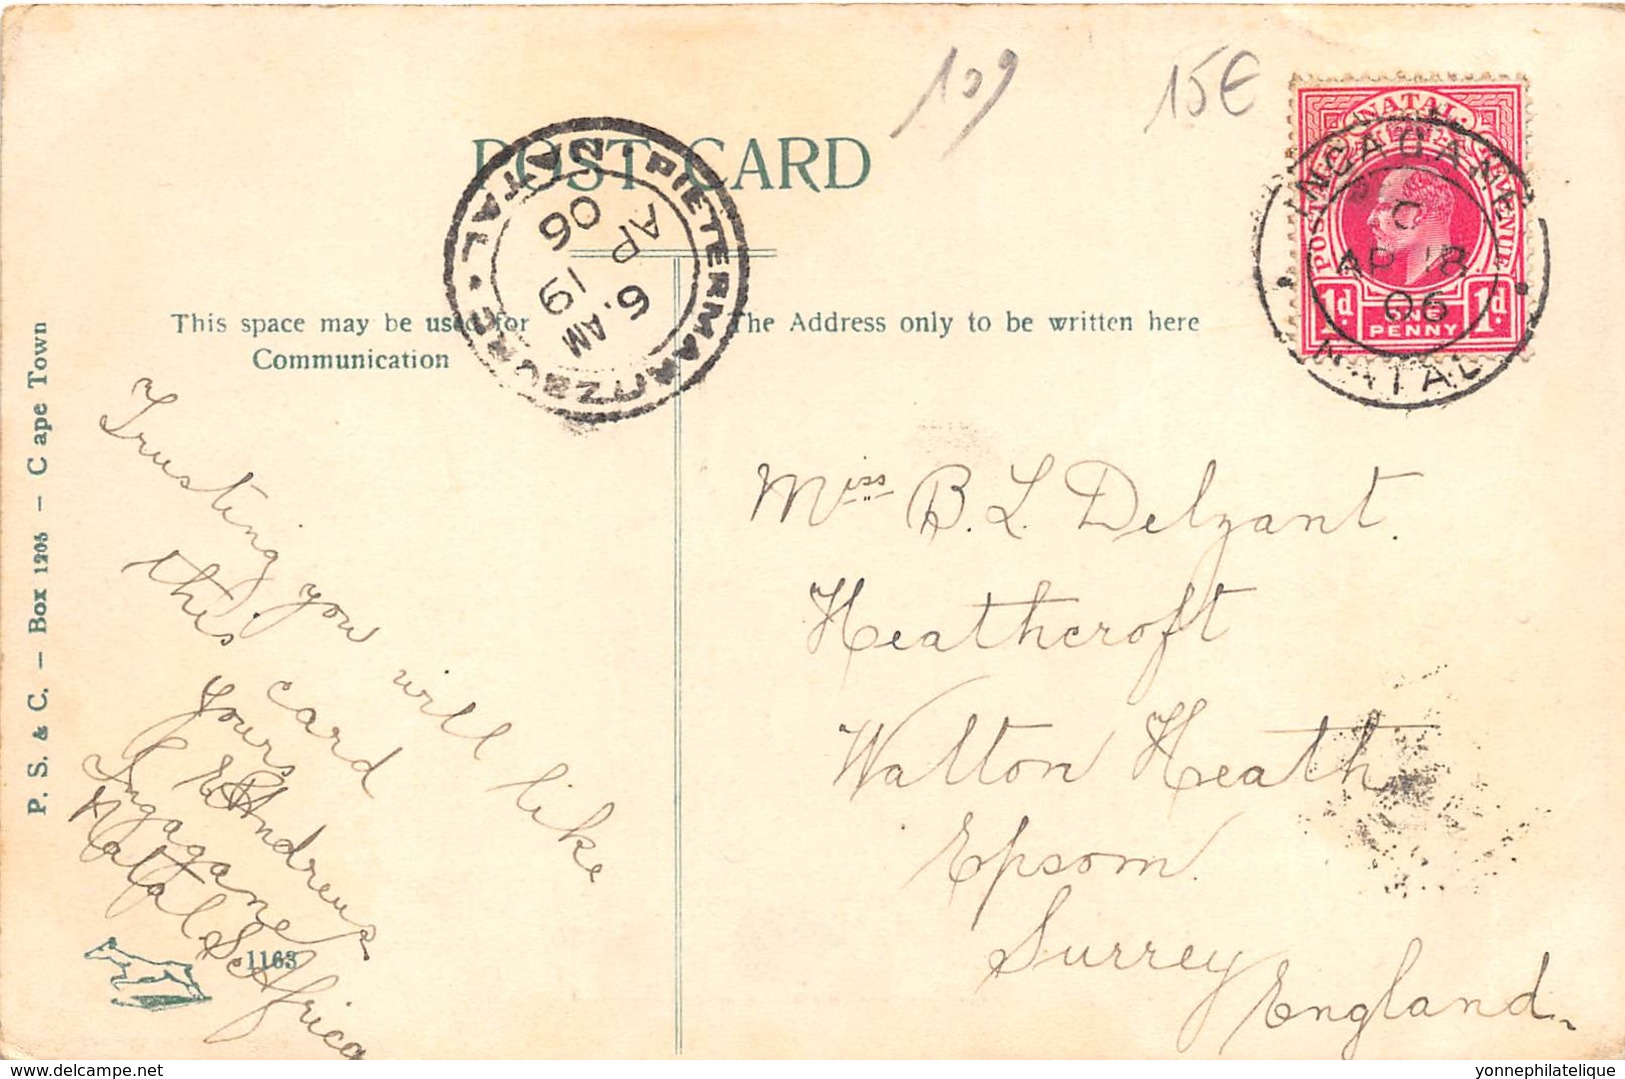 109
15€
POST CARD
NATAL
POSTAGE REVENUE
1d ONE PENNY 1d
INGAGANE
C
AP 18
06
NATAL
PIETERMARITZBURG · NATAL
6. AM
19
AP
06
This space may be used for
Communication
The Address only to be written here
P. S. & C. — Box 1205 — Cape Town
Trusting you will like
this card
Yours
E Andrews
Ingagane
Natal S. Africa
1163
Miss B. L. Delzant.
Heathcroft
Walton Heath
Epsom.
Surrey
England.
delcampe.net
yonnephilatelique